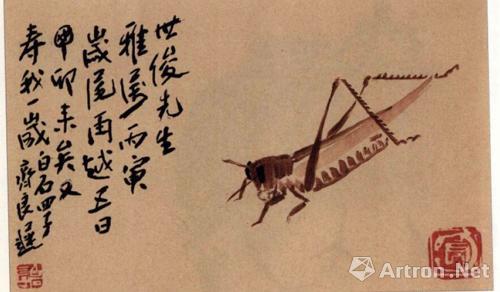 世俊先生
雅属丙寅
岁尾雨越五日
甲卯来矣又
寿我一岁白石四子
齐良迟
Artron.Net